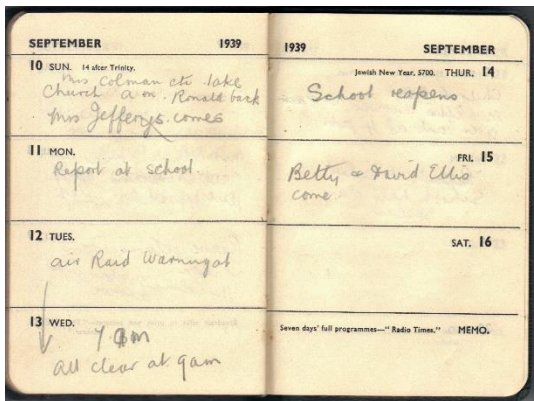 SEPTEMBER 1939
10 SUN. 14 after Trinity.
Mrs Colman etc take
Church a.m. Ronald back
Mrs Jefferys comes
11 MON.
Report at school
12 TUES.
air Raid Warning at
13 WED.
7 am
all clear at 9am
1939 SEPTEMBER
Jewish New Year, 5700. THUR. 14
School reopens
FRI. 15
Betty & David Ellis
come
SAT. 16
Seven days' full programmes—"Radio Times." MEMO.